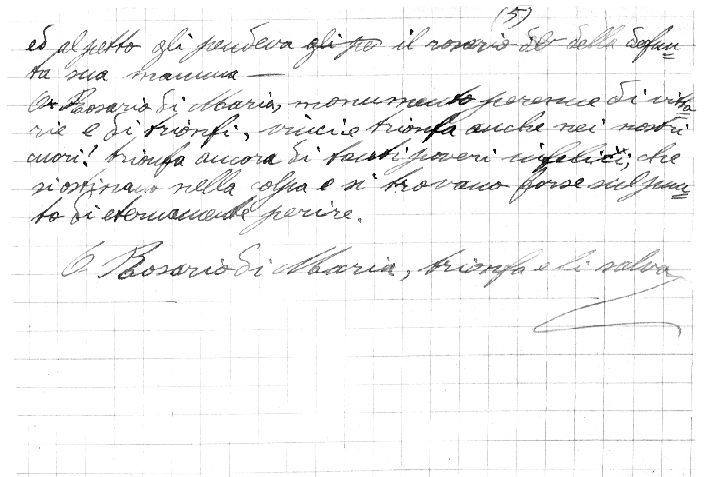 (5)
ed al petto gli pendeva gli pe il rosario de della defun-
ta sua mamma —
O Rosario di Maria, monumento perenne di vitto-
rie e di trionfi, vinci e trionfa anche nei nostri
cuori! trionfa ancora di tanti poveri infelici, che
si ostinano nella colpa e si trovano forse sul pun-
to di eternamente perire.
O Rosario di Maria, trionfa e li salva